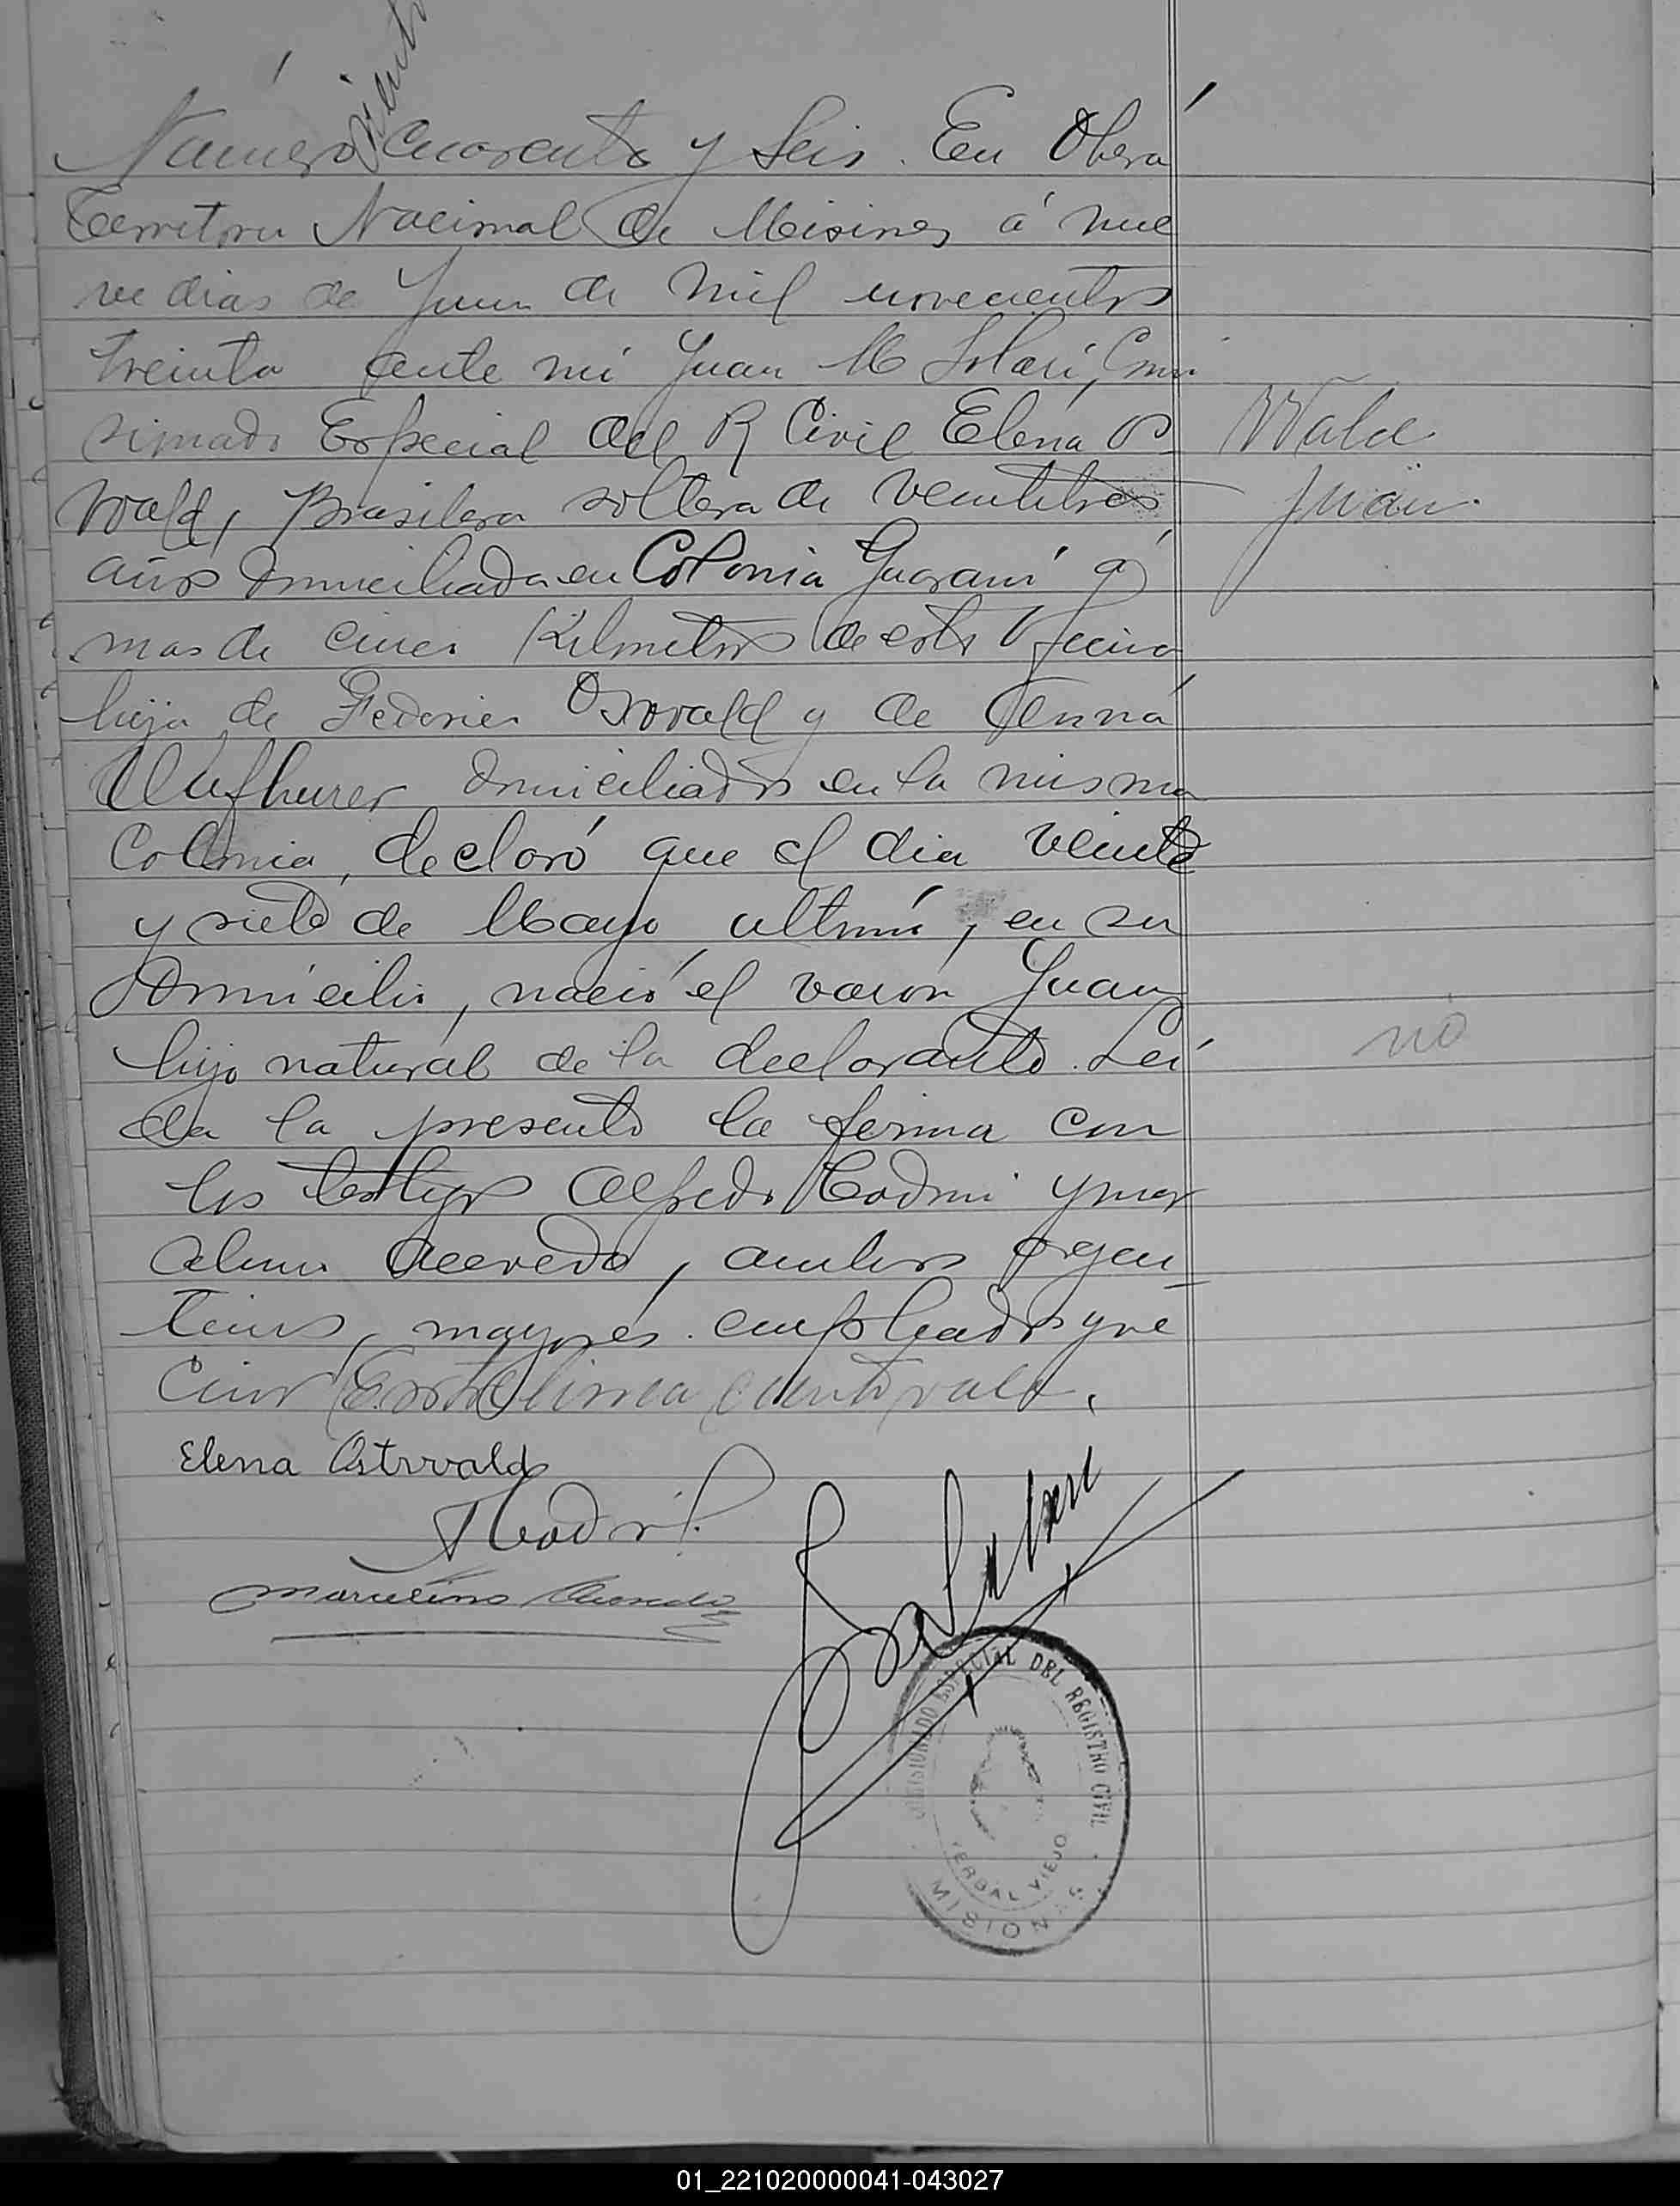 Número Cuarenta y Seis. En Oberá
Territorio Nacional de Misiones á nue
ve dias de Junio de mil novecientos
treinta ante mí Juan M Solari, Comi
sionado Especial del R Civil Elena O
Wald
wald, Brasilera soltera de veintitres
Juan
años domiciliada en Colonia Guaraní á
mas de cinco Kilometros de esta Oficina
hija de Federico Oswald y de Anna
domiciliados en la misma
Colonia, declaró que el dia veinte
y siete de Mayo ultimo, en su
domicilio, nació el varón Juan
hijo natural de la declarante. Lei
no
da la presente la firma con
los testigos Alfredo y mar
celino Acevedo, ambos argen
tinos, mayores empleados y ve
cinos
Elena Ostwald
Marcelino Acevedo
COMISIONADO ESPECIAL DEL REGISTRO CIVIL
YERBAL VIEJO
MISIONES
01_221020000041-043027